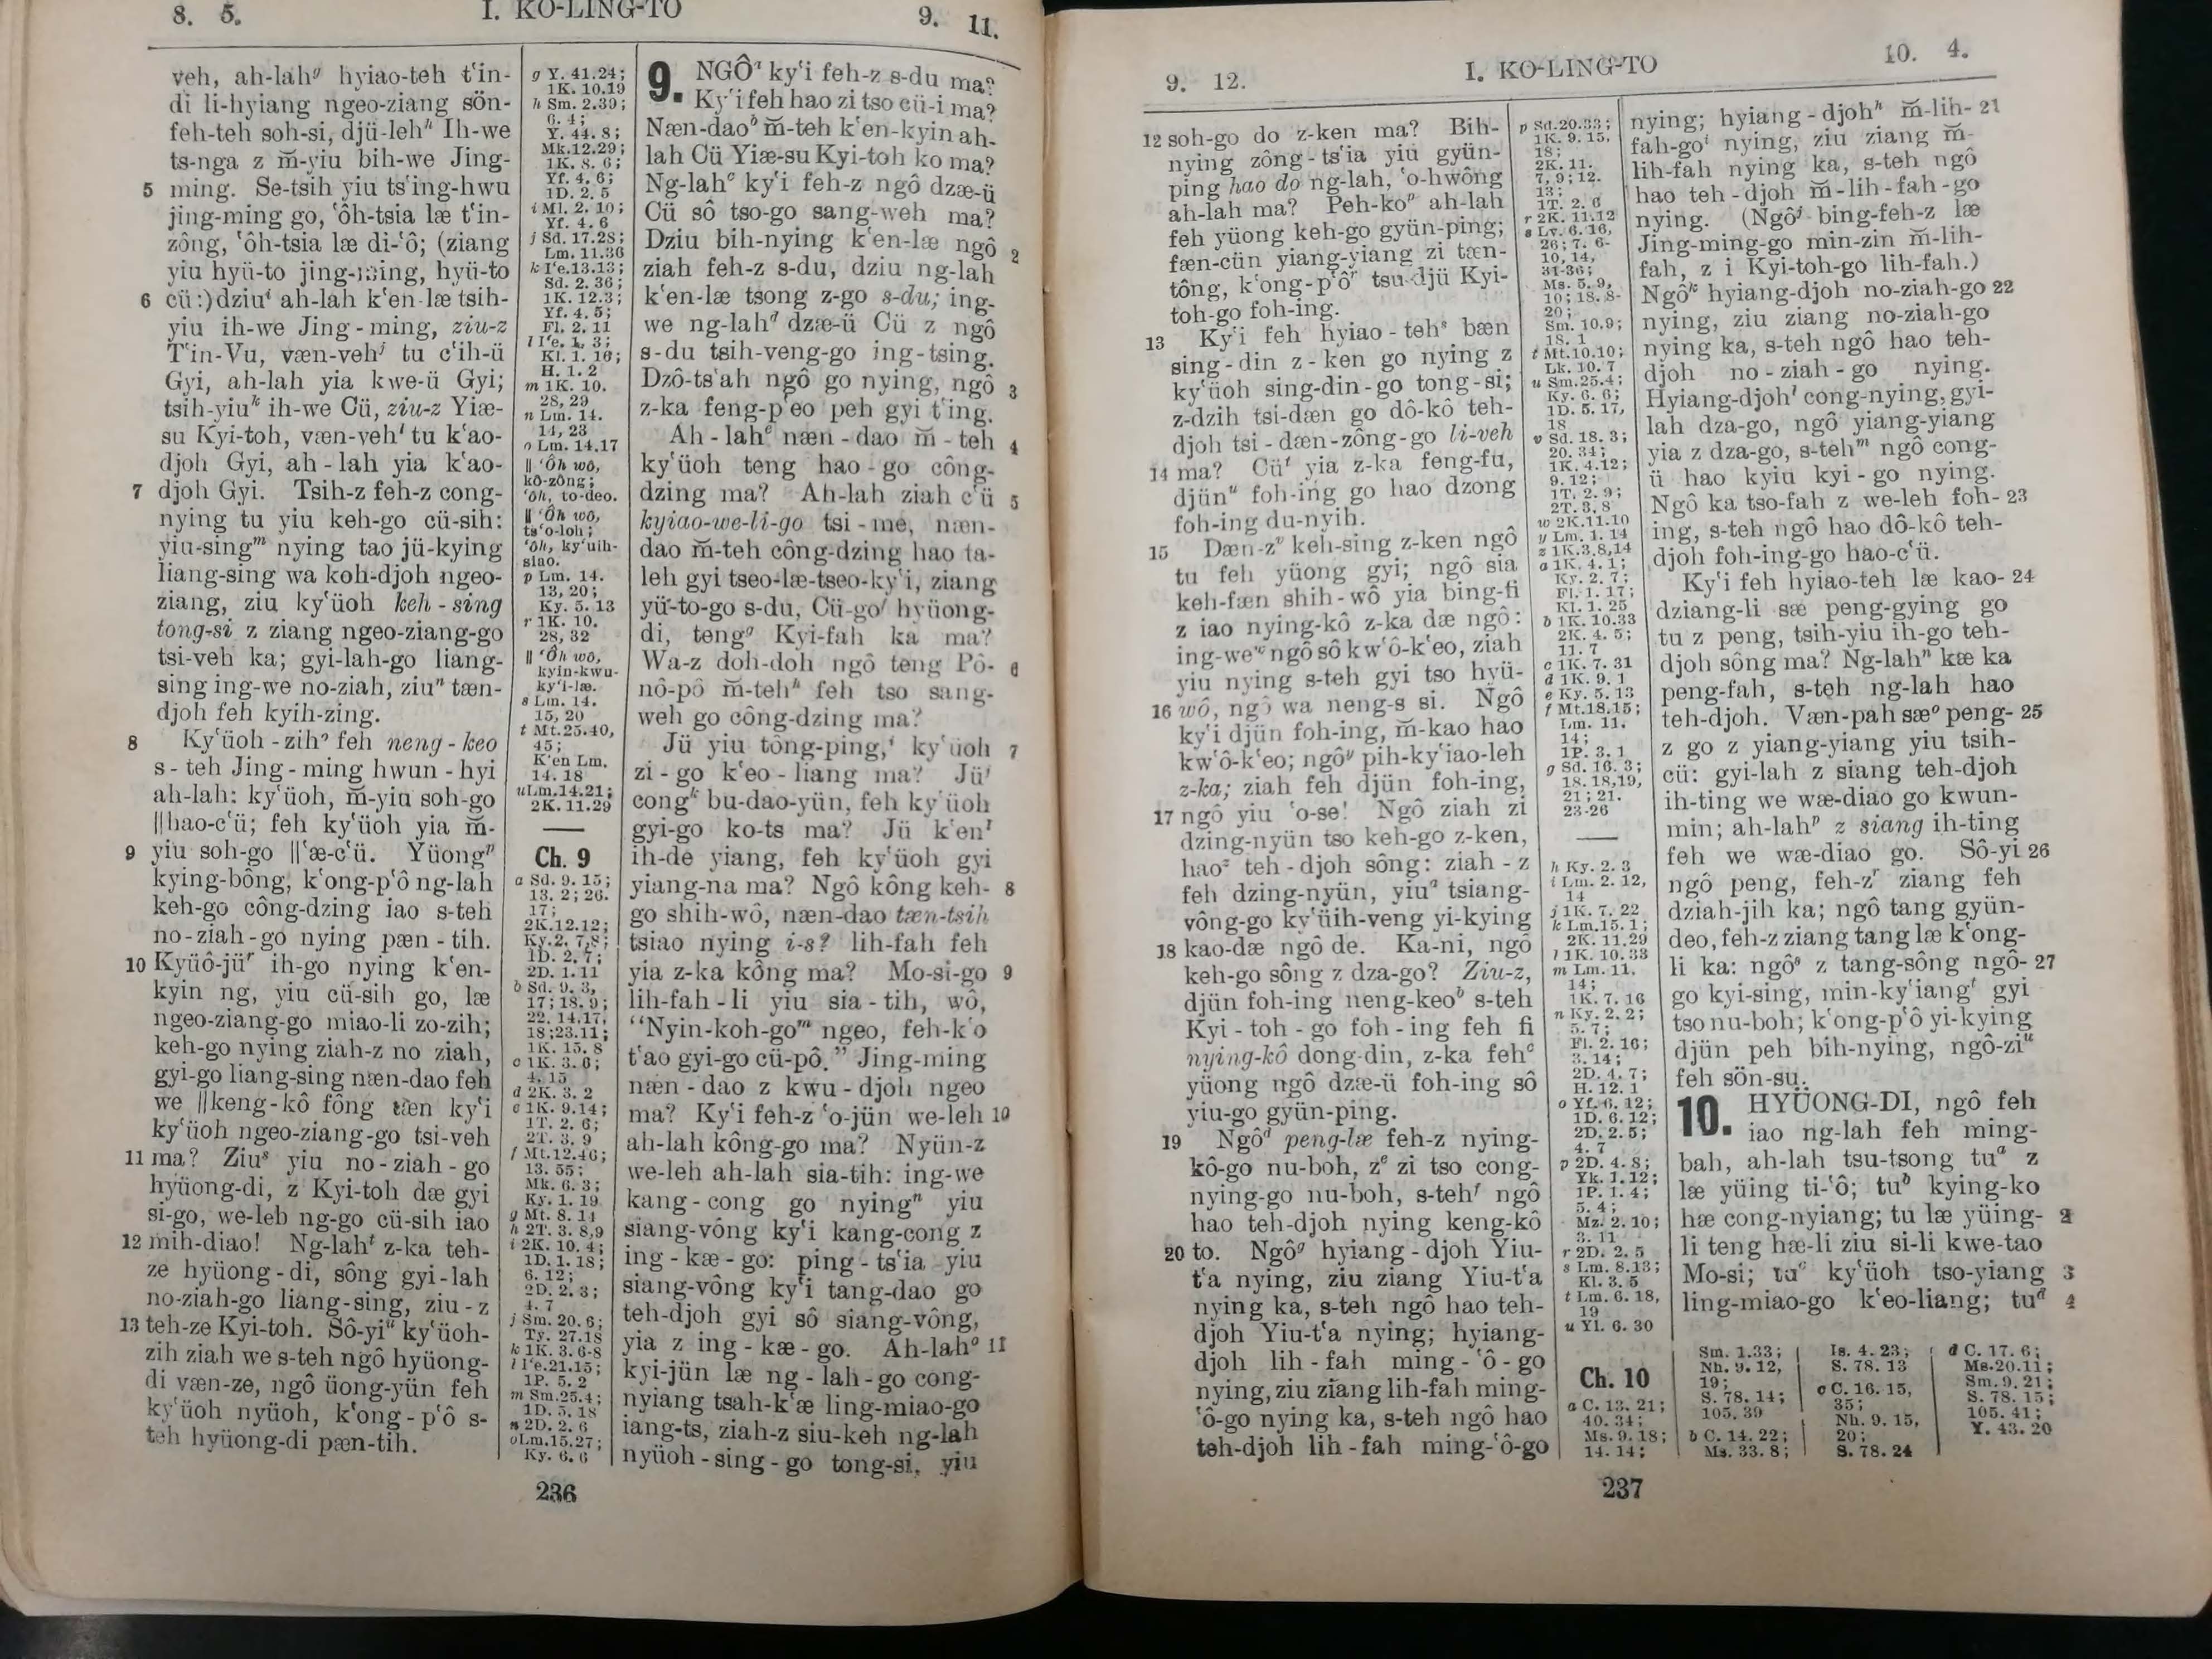 8. 5. I. KO-LING-TO 9. 11.
veh, ah-lahᵍ hyiao-teh t‘in-
di li-hyiang ngeo-ziang sön-
feh-teh soh-si, djü-lehʰ Ih-we
ts-nga z m̆-yiu bih-we Jing-
5 ming. Se-tsih yiu ts‘ing-hwu
jing-ming go, ‘ôh-tsia læ t‘in-
zông, ‘ôh-tsia læ di-‘ô; (ziang
yiu hyü-to jing-ming, hyü-to
6 cü:) dziuⁱ ah-lah k‘en-læ tsih-
yiu ih-we Jing-ming, ziu-z
T‘in-Vu, væn-vehʲ tu c‘ih-ü
Gyi, ah-lah yia kwe-ü Gyi;
tsih-yiuᵏ ih-we Cü, ziu-z Yiæ-
su Kyi-toh, væn-vehˡ tu k‘ao-
djoh Gyi, ah-lah yia k‘ao-
7 djoh Gyi. Tsih-z feh-z cong-
nying tu yiu keh-go cü-sih:
yiu-singᵐ nying tao jü-kying
liang-sing wa koh-djoh ngeo-
ziang, ziu ky‘üoh keh-sing
tong-si z ziang ngeo-ziang-go
tsi-veh ka; gyi-lah-go liang-
sing ing-we no-ziah, ziuⁿ tæn-
djoh feh kyih-zing.
8 Ky‘üoh-zihᵒ feh neng-keo
s-teh Jing-ming hwun-hyi
ah-lah: ky‘üoh, m̆-yiu soh-go
||hao-c‘ü; feh ky‘üoh yia m̆-
9 yiu soh-go ||‘æ-c‘ü. Yüongᵖ
kying-bông, k‘ong-p‘ô ng-lah
keh-go công-dzing iao s-teh
no-ziah-go nying pæn-tih.
10 Kyüô-jüʳ ih-go nying k‘en-
kyin ng, yiu cü-sih go, læ
ngeo-ziang-go miao-li zo-zih;
keh-go nying ziah-z no ziah,
gyi-go liang-sing næn-dao feh
we ||keng-kô fông tæn ky‘i
ky‘üoh ngeo-ziang-go tsi-veh
11 ma? Ziuˢ yiu no-ziah-go
hyüong-di, z Kyi-toh dæ gyi
si-go, we-leh ng-go cü-sih iao
12 mih-diao! Ng-lahᵗ z-ka teh-
ze hyüong-di, sông gyi-lah
no-ziah-go liang-sing, ziu-z
13 teh-ze Kyi-toh. Sô-yiᵘ ky‘üoh-
zih ziah we s-teh ngô hyüong-
di væn-ze, ngô üong-yün feh
ky‘üoh nyüoh, k‘ong-p‘ô s-
teh hyüong-di pæn-tih.
g Y. 41.24;
1K. 10.19
h Sm. 2.39;
6. 4;
Y. 44. 8;
Mk.12.29;
1K. 8. 6;
Yf. 4. 6;
1D. 2. 5
i Ml. 2. 10;
Yf. 4. 6
j Sd. 17.28;
Lm. 11.36
k I‘e.13.13;
Sd. 2. 36;
1K. 12.3;
Yf. 4. 5;
Fl. 2. 11
l I‘e. 1. 3;
Kl. 1. 16;
H. 1. 2
m 1K. 10.
28, 29
n Lm. 14.
14, 23
o Lm. 14.17
|| ‘Ôh wô,
kô-zông;
‘ôh, to-deo.
|| ‘Ôh wô,
ts‘o-loh;
‘ôh, ky‘uih-
siao.
p Lm. 14.
13, 20;
Ky. 5. 13
r 1K. 10.
28, 32
|| ‘Ôh wô,
kyin-kwu-
ky‘i-læ.
s Lm. 14.
15, 20
t Mt.25.40,
45;
K‘en Lm.
14. 18
u Lm.14.21;
2K. 11.29
Ch. 9
a Sd. 9. 15;
13. 2; 26.
17;
2K.12.12;
Ky.2. 7,8;
1D. 2. 7;
2D. 1. 11
b Sd. 9. 3,
17; 18. 9;
22. 14,17,
18;23.11;
1K. 15. 8
c 1K. 3. 6;
4. 15
d 2K. 3. 2
e 1K. 9.14;
1T. 2. 6;
2T. 3. 9
f Mt.12.46;
13. 55;
Mk. 6. 3;
Ky. 1. 19
g Mt. 8. 14
h 2T. 3. 8,9
i 2K. 10. 4;
1D. 1. 18;
6. 12;
2D. 2. 3;
4. 7
j Sm. 20. 6;
Ty. 27.18
k 1K. 3. 6-8
l I‘e.21.15;
1P. 5. 2
m Sm.25.4;
1D. 5. 18
n 2D. 2. 6
o Lm.15.27;
Ky. 6. 6
9. NGÔᵃ ky‘i feh-z s-du ma?
Ky‘i feh hao zi tso cü-i ma?
Næn-daoᵇ m̆-teh k‘en-kyin ah-
lah Cü Yiæ-su Kyi-toh ko ma?
Ng-lahᶜ ky‘i feh-z ngô dzæ-ü
Cü sô tso-go sang-weh ma?
Dziu bih-nying k‘en-læ ngô 2
ziah feh-z s-du, dziu ng-lah
k‘en-læ tsong z-go s-du; ing-
we ng-lahᵈ dzæ-ü Cü z ngô
s-du tsih-veng-go ing-tsing.
Dzô-ts‘ah ngô go nying, ngô 3
z-ka feng-p‘eo peh gyi t‘ing.
Ah-lahᵉ næn-dao m̆-teh 4
ky‘üoh teng hao-go công-
dzing ma? Ah-lah ziah c‘ü 5
kyiao-we-li-go tsi-me, næn-
dao m̆-teh công-dzing hao ta-
leh gyi tseo-læ-tseo-ky‘i, ziang
yü-to-go s-du, Cü-goᶠ hyüong-
di, tengᵍ Kyi-fah ka ma?
Wa-z doh-doh ngô teng Pô- 6
nô-pô m̆-tehʰ feh tso sang-
weh go công-dzing ma?
Jü yiu tông-ping,ⁱ ky‘üoh 7
zi-go k‘eo-liang ma? Jüʲ
congᵏ bu-dao-yün, feh ky‘üoh
gyi-go ko-ts ma? Jü k‘enˡ
ih-de yiang, feh ky‘üoh gyi
yiang-na ma? Ngô kông keh- 8
go shih-wô, næn-dao tæn-tsih
tsiao nying i-s? lih-fah feh
yia z-ka kông ma? Mo-si-go 9
lih-fah-li yiu sia-tih, wô,
“Nyin-koh-goᵐ ngeo, feh-k‘o
t‘ao gyi-go cü-pô.” Jing-ming
næn-dao z kwu-djoh ngeo
ma? Ky‘i feh-z ‘o-jün we-leh 10
ah-lah kông-go ma? Nyün-z
we-leh ah-lah sia-tih: ing-we
kang-cong go nyingⁿ yiu
siang-vông ky‘i kang-cong z
ing-kæ-go: ping-ts‘ia yiu
siang-vông ky‘i tang-dao go
teh-djoh gyi sô siang-vông,
yia z ing-kæ-go. Ah-lahᵒ 11
kyi-jün læ ng-lah-go cong-
nyiang tsah-k‘æ ling-miao-go
iang-ts, ziah-z siu-keh ng-lah
nyüoh-sing-go tong-si, yiu
236
9. 12. I. KO-LING-TO 10. 4.
12 soh-go do z-ken ma? Bih-
nying zông-ts‘ia yiu gyün-
ping hao do ng-lah, ‘o-hwông
ah-lah ma? Peh-koᵖ ah-lah
feh yüong keh-go gyün-ping;
fæn-cün yiang-yiang zi tæn-
tông, k‘ong-p‘ôʳ tsu-djü Kyi-
toh-go foh-ing.
13 Ky‘i feh hyiao-tehˢ bæn
sing-din z-ken go nying z
ky‘üoh sing-din-go tong-si;
z-dzih tsi-dæn go dô-kô teh-
djoh tsi-dæn-zông-go li-veh
14 ma? Cüᵗ yia z-ka feng-fu,
djünᵘ foh-ing go hao dzong
foh-ing du-nyih.
15 Dæn-zᵛ keh-sing z-ken ngô
tu feh yüong gyi; ngô sia
keh-fæn shih-wô yia bing-fi
z iao nying-kô z-ka dæ ngô:
ing-weʷ ngô sô kw‘ô-k‘eo, ziah
yiu nying s-teh gyi tso hyü-
16 wô, ngô wa neng-s si. Ngô
ky‘i djün foh-ing, m̆-kao hao
kw‘ô-k‘eo; ngôʸ pih-ky‘iao-leh
z-ka; ziah feh djün foh-ing,
17 ngô yiu ‘o-se! Ngô ziah zi
dzing-nyün tso keh-go z-ken,
haoᶻ teh-djoh sông: ziah-z
feh dzing-nyün, yiuᵃ tsiang-
vông-go ky‘üih-veng yi-kying
18 kao-dæ ngô de. Ka-ni, ngô
keh-go sông z dza-go? Ziu-z,
djün foh-ing neng-keoᵇ s-teh
Kyi-toh-go foh-ing feh fi
nying-kô dong-din, z-ka fehᶜ
yüong ngô dzæ-ü foh-ing sô
yiu-go gyün-ping.
19 Ngôᵈ peng-læ feh-z nying-
kô-go nu-boh, zᵉ zi tso cong-
nying-go nu-boh, s-tehᶠ ngô
hao teh-djoh nying keng-kô
20 to. Ngôᵍ hyiang-djoh Yiu-
t‘a nying, ziu ziang Yiu-t‘a
nying ka, s-teh ngô hao teh-
djoh Yiu-t‘a nying; hyiang-
djoh lih-fah ming-‘ô-go
nying, ziu ziang lih-fah ming-
‘ô-go nying ka, s-teh ngô hao
teh-djoh lih-fah ming-‘ô-go
p Sd.20.33;
1K. 9. 15,
18;
2K. 11.
7, 9; 12.
13;
1T. 2. 6
r 2K. 11.12
s Lv. 6. 16,
26; 7. 6-
10, 14,
31-36;
Ms. 5. 9,
10; 18. 8-
20;
Sm. 10.9;
18. 1
t Mt.10.10;
Lk. 10. 7
u Sm.25.4;
Ky. 6. 6;
1D. 5. 17,
18
v Sd. 18. 3;
20. 34;
1K. 4.12;
9. 12;
1T. 2. 9;
2T. 3. 8
w 2K.11.10
y Lm. 1. 14
z 1K.3.8,14
a 1K. 4. 1;
Ky. 2. 7;
Fl. 1. 17;
Kl. 1. 25
b 1K. 10.33
2K. 4. 5;
11. 7
c 1K. 7. 31
d 1K. 9. 1
e Ky. 5. 13
f Mt.18.15;
Lm. 11.
14;
1P. 3. 1
g Sd. 16. 3;
18. 18,19,
21; 21.
23-26
h Ky. 2. 3
i Lm. 2. 12,
14
j 1K. 7. 22
k Lm.15. 1;
2K. 11.29
l 1K. 10.33
m Lm. 11.
14;
1K. 7. 16
n Ky. 2. 2;
5. 7;
Fl. 2. 16;
3. 14;
2D. 4. 7;
H. 12. 1
o Yf. 6. 12;
1D. 6. 12;
2D. 2. 5;
4. 7
p 2D. 4. 8;
Yk. 1. 12;
1P. 1. 4;
5. 4;
Mz. 2. 10;
3. 11
r 2D. 2. 5
s Lm. 8.13;
Kl. 3. 5
t Lm. 6. 18,
19
u Yl. 6. 30
Ch. 10
a C. 13. 21;
40. 34;
Ms. 9. 18;
14. 14;
nying; hyiang-djohʰ m̆-lih- 21
fah-goⁱ nying, ziu ziang m̆-
lih-fah nying ka, s-teh ngô
hao teh-djoh m̆-lih-fah-go
nying. (Ngôʲ bing-feh-z læ
Jing-ming-go min-zin m̆-lih-
fah, z i Kyi-toh-go lih-fah.)
Ngôᵏ hyiang-djoh no-ziah-go 22
nying, ziu ziang no-ziah-go
nying ka, s-teh ngô hao teh-
djoh no-ziah-go nying.
Hyiang-djohˡ cong-nying, gyi-
lah dza-go, ngô yiang-yiang
yia z dza-go, s-tehᵐ ngô cong-
ü hao kyiu kyi-go nying.
Ngô ka tso-fah z we-leh foh- 23
ing, s-teh ngô hao dô-kô teh-
djoh foh-ing-go hao-c‘ü.
Ky‘i feh hyiao-teh læ kao- 24
dziang-li sæ peng-gying go
tu z peng, tsih-yiu ih-go teh-
djoh sông ma? Ng-lahⁿ kæ ka
peng-fah, s-teh ng-lah hao
teh-djoh. Væn-pah sæᵒ peng- 25
z go z yiang-yiang yiu tsih-
cü: gyi-lah z siang teh-djoh
ih-ting we wæ-diao go kwun-
min; ah-lahᵖ z siang ih-ting
feh we wæ-diao go. Sô-yi 26
ngô peng, feh-zʳ ziang feh
dziah-jih ka; ngô tang gyün-
deo, feh-z ziang tang læ k‘ong-
li ka: ngôˢ z tang-sông ngô- 27
go kyi-sing, min-ky‘iangᵗ gyi
tso nu-boh; k‘ong-p‘ô yi-kying
djün peh bih-nying, ngô-ziᵘ
feh sön-su.
10. HYÜONG-DI, ngô feh
iao ng-lah feh ming-
bah, ah-lah tsu-tsong tuᵃ z
læ yüing ti-‘ô; tuᵇ kying-ko
hæ cong-nyiang; tu læ yüing- 2
li teng hæ-li ziu si-li kwe-tao
Mo-si; tuᶜ ky‘üoh tso-yiang 3
ling-miao-go k‘eo-liang; tuᵈ 4
Sm. 1.33;
Nh. 9. 12,
19;
S. 78. 14;
105. 39
b C. 14. 22;
Ms. 33. 8;
Is. 4. 23;
S. 78. 13
c C. 16. 15,
35;
Nh. 9. 15,
20;
S. 78. 24
d C. 17. 6;
Ms.20.11;
Sm. 9. 21;
S. 78. 15;
105. 41;
Y. 43. 20
237